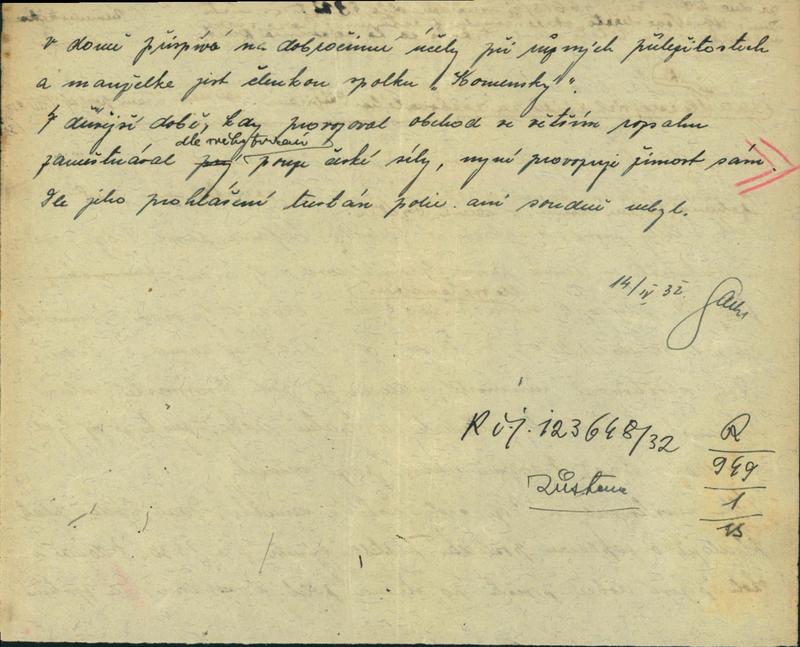 v domě přispívá na dobročinné účely při různých příležitostech
a manželka jest členkou spolku „Komenský“.
V dřívější době, kdy provozoval obchod ve větším rozsahu
dle
zaměstnával pouze české síly, nyní provozuje živnost sám.
Dle jeho prohlášení trestán polic. ani soudně nebyl.
14/IV 32.
K č.j. 123648/32
Zůstane
R
949
1
15